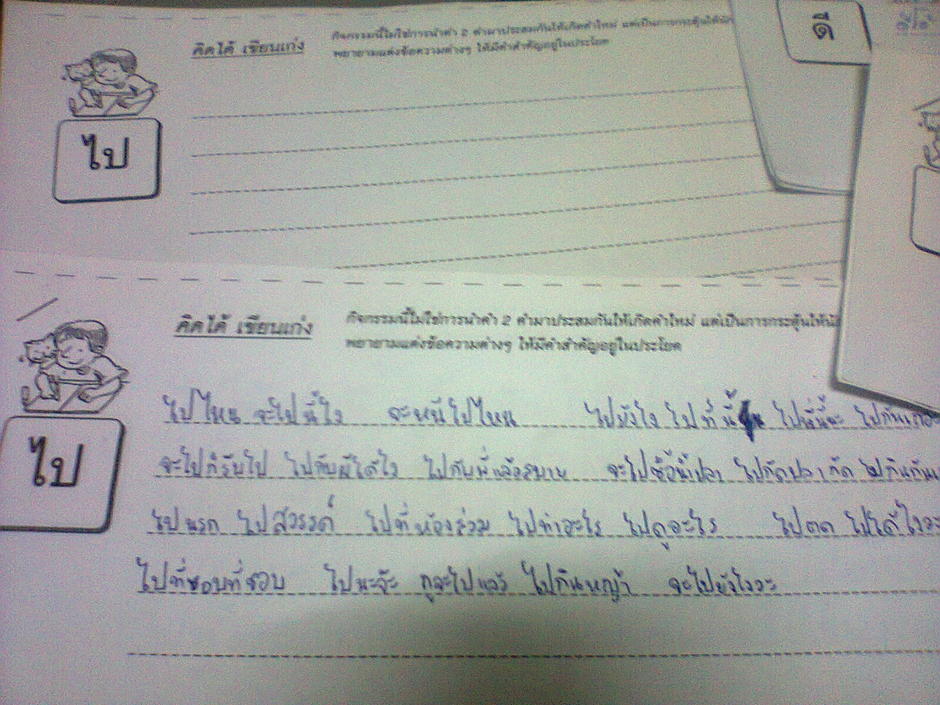 คิดได้ เขียนเก่ง
กิจกรรมนี้ไม่ใช่การนำคำ 2 คำมาประสมกันให้เกิดคำใหม่ แต่เป็นการกระตุ้นให้
พยายามแต่งข้อความต่างๆ ให้มีคำสำคัญอยู่ในประโยค
ไป
ดี
คิดได้ เขียนเก่ง
กิจกรรมนี้ไม่ใช่การนำคำ 2 คำมาประสมกันให้เกิดคำใหม่ แต่เป็นการกระตุ้นให้
พยายามแต่งข้อความต่างๆ ให้มีคำสำคัญอยู่ในประโยค
ไป
ไปไหน จะไปนี้ไง จะหนีไปไหน ไปยังไง ไปที่นี้ ไปนี่นี้นะ
จะไปก็รีบไป ไปกับผีได้ไง ไปกับพี่แล้วสบาย จะไปซื้อน้ำปลา ไปกัดปลากัด
ไปนรก ไปสวรรค์ ไปที่ห้องส่วม ไปทำอะไร ไปดูอะไร ไปตด ไปได้ไงวะ
ไปที่ชอบที่ชอบ ไปนะจ๊ะ กูจะไปแล้ว ไปกินหญ้า จะไปยังไงวะ